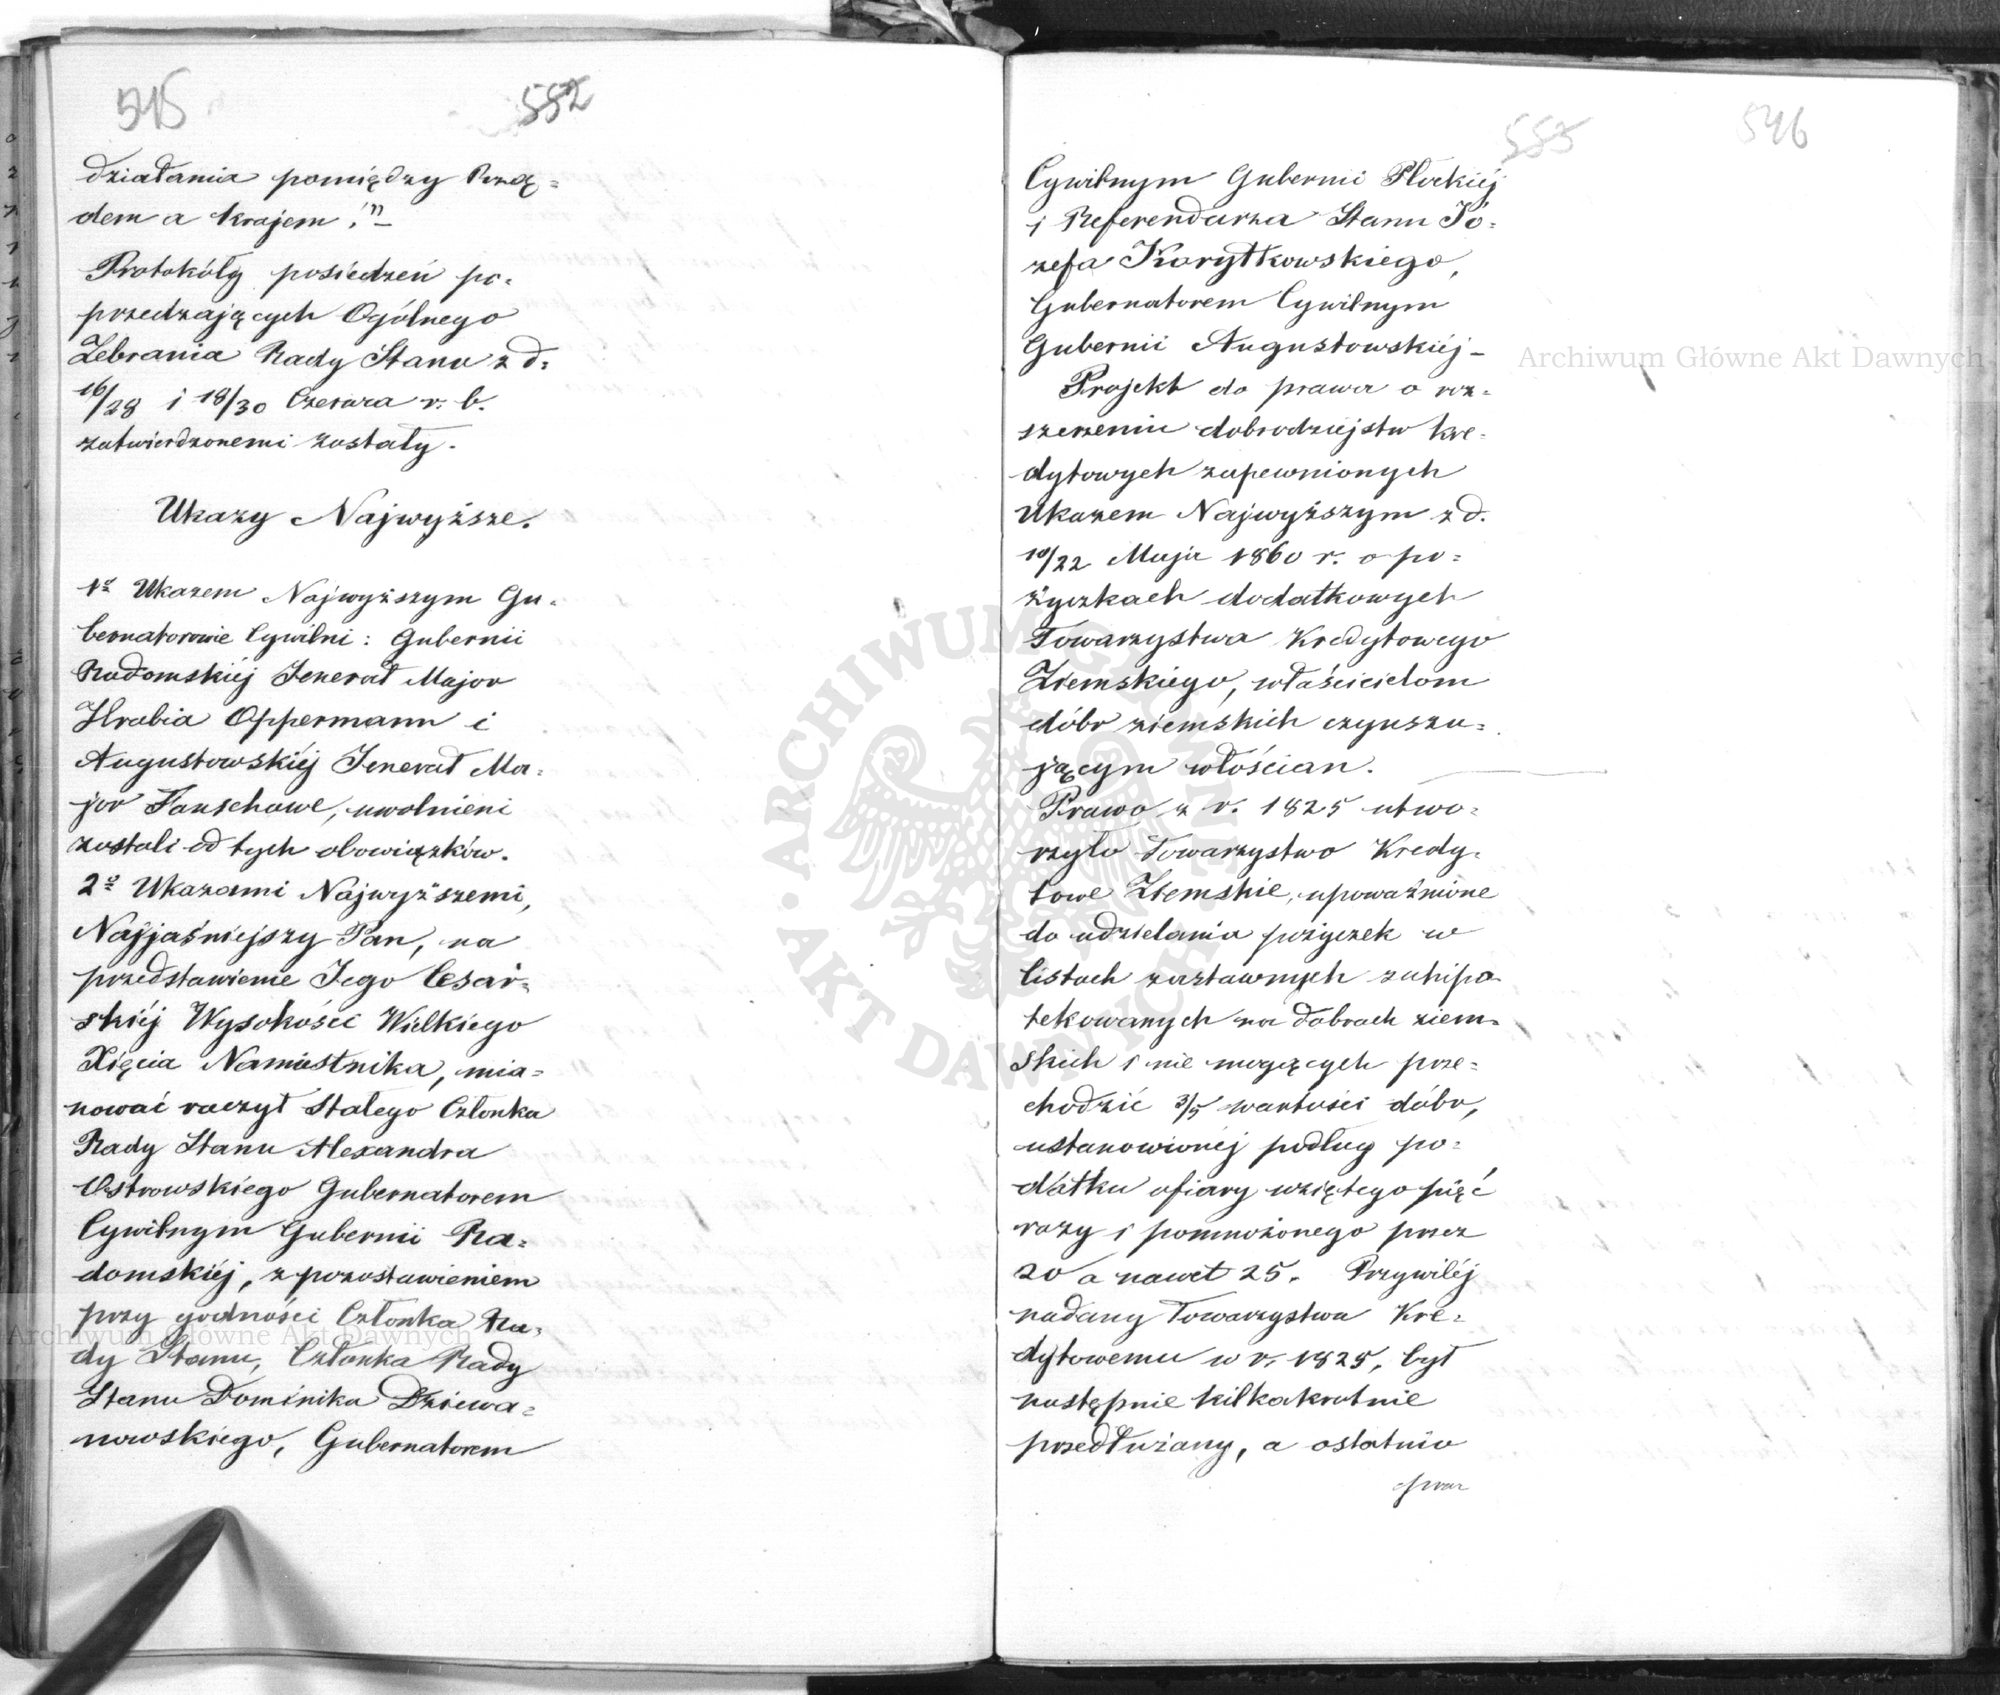 545
552
działania pomiędzy Rzą=
dem a krajem."–
Protokóły posiedzeń po=
przedzających Ogólnego
Zebrania Rady Stanu z d.
16/28 i 18/30 Czerwca r. b.
zatwierdzonemi zostały.
Ukazy Najwyższe.
1º Ukazem Najwyższym Gu=
bernatorowie Cywilni: Gubernii
Radomskiéj Jenerał Major
Hrabia Oppermann i
Augustowskiéj Jenerał Ma=
jor Fanschawe, uwolnieni
zostali od tych obowiązków.
2º Ukazami Najwyższemi,
Najjaśniejszy Pan, na
przedstawienie Jego Cesar=
skiéj Wysokości Wielkiego
Xięcia Namiestnika, mia=
nować raczył Stałego Członka
Rady Stanu Alexandra
Ostrowskiego Gubernatorem
Cywilnym Gubernii Ra=
domskiéj, z pozostawieniem
przy godności Członka Ra=
dy Stanu, Członka Rady
Stanu Dominika Dziewa=
nowskiego, Gubernatorem
553
546
Cywilnym Gubernii Płockiéj
i Referendarza Stanu Jó=
zefa Korytkowskiego,
Gubernatorem Cywilnym
Gubernii Augustowskiéj –
Projekt do prawa o roz=
szerzeniu dobrodziejstw kre=
dytowych zapewnionych
Ukazem Najwyższym z d.
10/22 Maja 1860 r. o po=
życzkach dodatkowych
Towarzystwa Kredytowego
Ziemskiego, właścicielom
dóbr ziemskich czynszu=
jącym włościan.
Prawo z r. 1825 utwo=
rzyło Towarzystwo Kredy=
towe Ziemskie, upoważnione
do udzielania pożyczek w
listach zastawnych zahipo
tekowanych na dobrach ziem=
skich i nie mogących prze=
chodzić 3/5 wartości dóbr,
ustanowionéj podług po=
datku ofiary wziętego pięć
razy i pomnożonego przez
20 a nawet 25. Przywiléj
nadany Towarzystwu Kre=
dytowemu w r. 1825, był
następnie kilkakrotnie
przedłużany, a ostatnio
Archiwum Główne Akt Dawnych
Archiwum Główne Akt Dawnych
· ARCHIWUM GŁÓWNE · AKT DAWNYCH